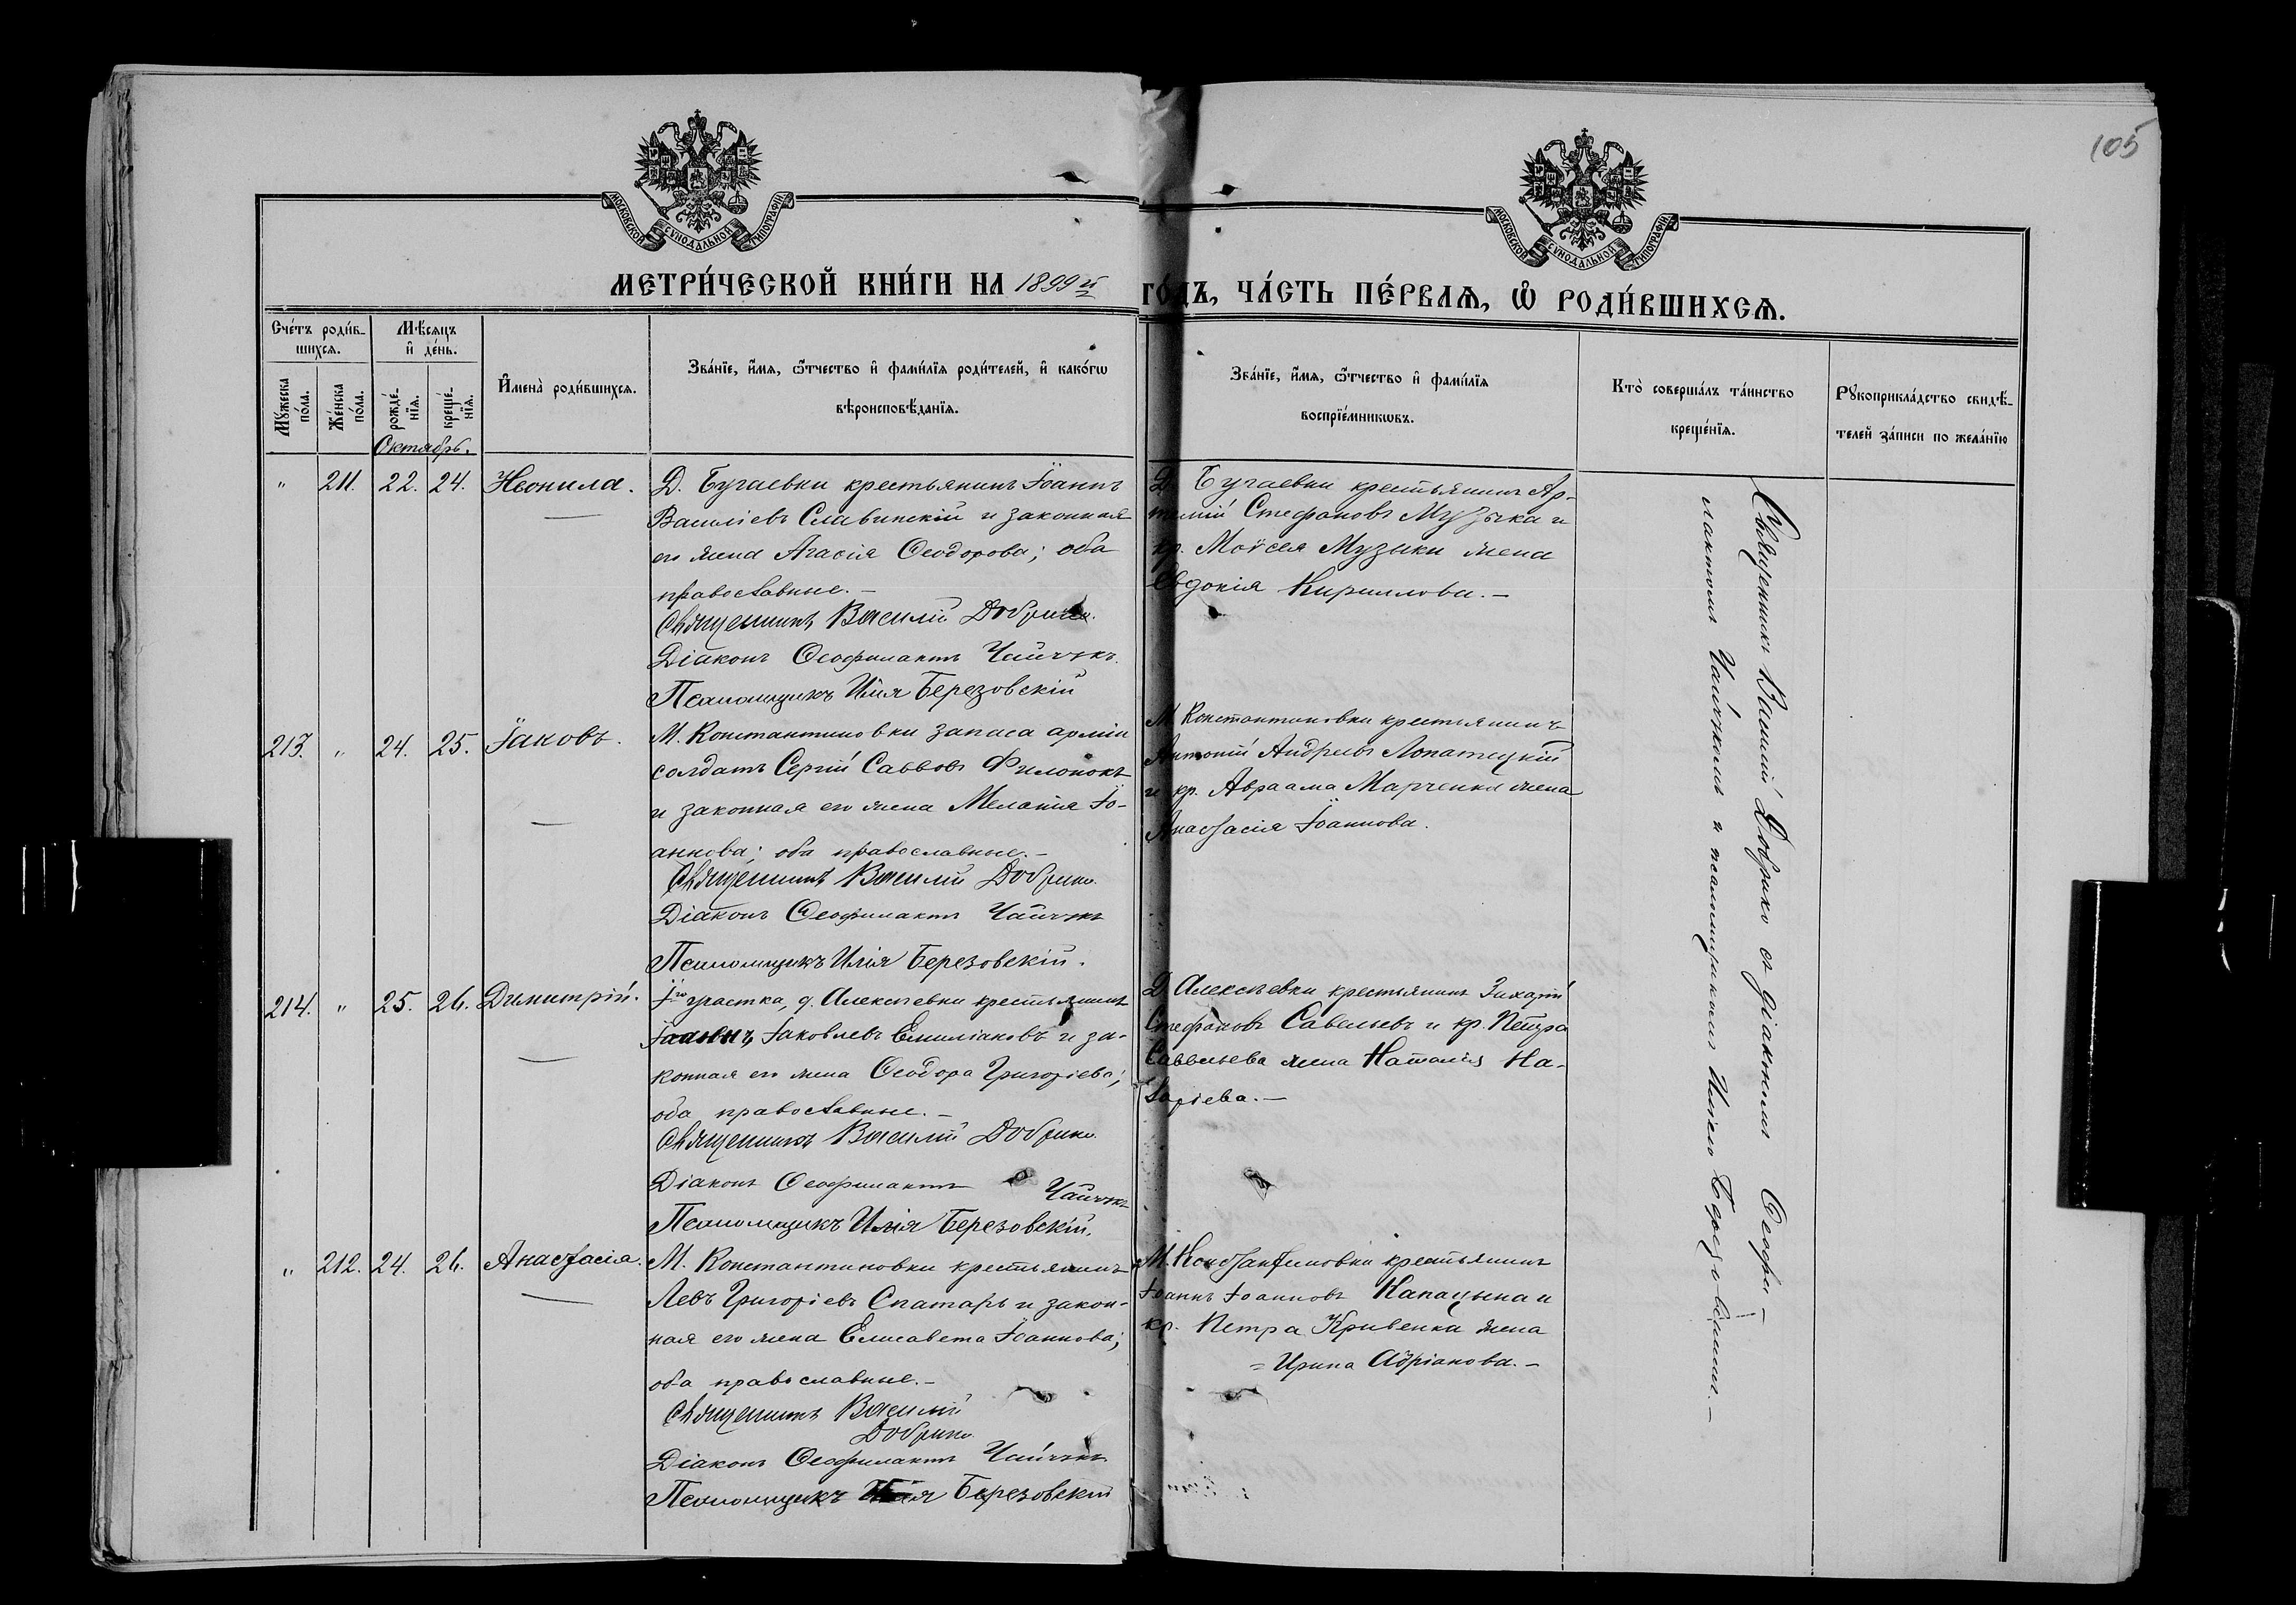 105
МОСКОВСКОЙ СѴНОДАЛЬНОЙ ТИПОГРАФІИ
МОСКОВСКОЙ СѴНОДАЛЬНОЙ ТИПОГРАФІИ
МЕТРИ́ЧЕСКОЙ КНИ́ГИ НА 1899й ГО́ДЪ, ЧА́СТЬ ПЕ́РВАѦ, Ѡ҆ РОДИ́ВШИХСѦ.
Сче́тъ роди́в-
шихсѧ.
Мѣ́сяцъ
и҆ де́нь.
Мꙋ́жеска
по́ла.
Же́нска
по́ла.
рожде́-
нїѧ.
креще́-
нїѧ.
И҆мена̀ роди́вшихсѧ.
Зва́нїе, и҆́мѧ, ѻ҆́тчество и҆ фами́лїѧ роди́телей, и҆ како́гѡ
вѣроисповѣ́данїѧ.
Зва́нїе, и҆́мѧ, ѻ҆́тчество и҆ фами́лїѧ
воспрїе́мникѡвъ.
Кто̀ соверша́лъ та́инство
креще́нїѧ.
Рꙋкоприкла́дство свидѣ́-
телей за́писи по жела́нїю
Октябрь.
" 211. 22. 24. Неонила.
Д. Бугаевки крестьянинъ Іоаннъ
Василіевъ Славинскій и законная
его жена Агафія Ѳеодорова; оба
православные. –
Священникъ Василій Добрико.
Діаконъ Ѳеофилактъ Чайчукъ.
Псаломщикъ Илія Березовскій
Д. Бугаевки крестьянинъ Ар-
темій Стефановъ Музыка и
кр. Моѵсея Музыки жена
Евдокія Кириллова. –
213. " 24. 25. Іаковъ.
М. Константиновки запаса арміи
солдатъ Сергій Саввовъ Филонокъ
и законная его жена Меланія Іо-
аннова; оба православные. –
Священникъ Василій Добрико.
Діаконъ Ѳеофилактъ Чайчукъ
Псаломщикъ Илія Березовскій.
М. Константиновки крестьянинъ
Антоній Андреевъ Лопатецкій
и кр. Авраама Марченки жена
Анастасія Іоаннова.
214. " 25. 26. Димитрій.
І-го участка, д. Алексѣевки крестьянинъ
Іоаннъ Іаковлевъ Емиліановъ и за-
конная его жена Ѳеодора Григоріева;
оба православные. –
Священникъ Василій Добрико.
Діаконъ Ѳеофилактъ Чайчукъ
Псаломщикъ Илія Березовскій.
Д. Алексѣевки крестьянинъ Захарій
Стефановъ Савельевъ и кр. Петра
Савельева жена Наталія На-
заріева. –
" 212. 24. 26. Анастасіа.
М. Константиновки крестьянинъ
Левъ Григоріевъ Спатарь и закон-
ная его жена Елисавета Іоаннова;
оба православные. –
Священникъ Василій
Добрико
Діаконъ Ѳеофилактъ Чайчукъ
Псаломщикъ Илія Березовскій
М. Константиновки крестьянинъ
Іоаннъ Іоанновъ Капацына и
кр. Петра Кривенка жена
= Ирина Адріанова. –
Священникъ Василій Добрико съ діакономъ Ѳеофи-
лактомъ Чайчукомъ и псаломщикомъ Иліею Березовскимъ. –